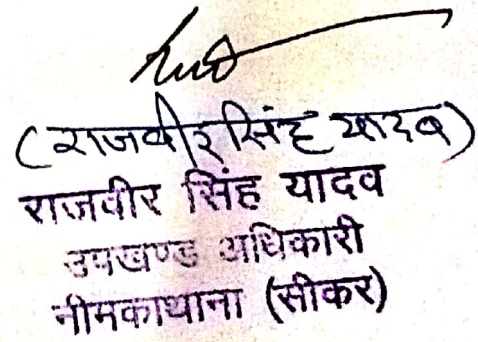 (राजवीर सिंह यादव)
राजवीर सिंह यादव
उपखण्ड अधिकारी
नीमकाथाना (सीकर)